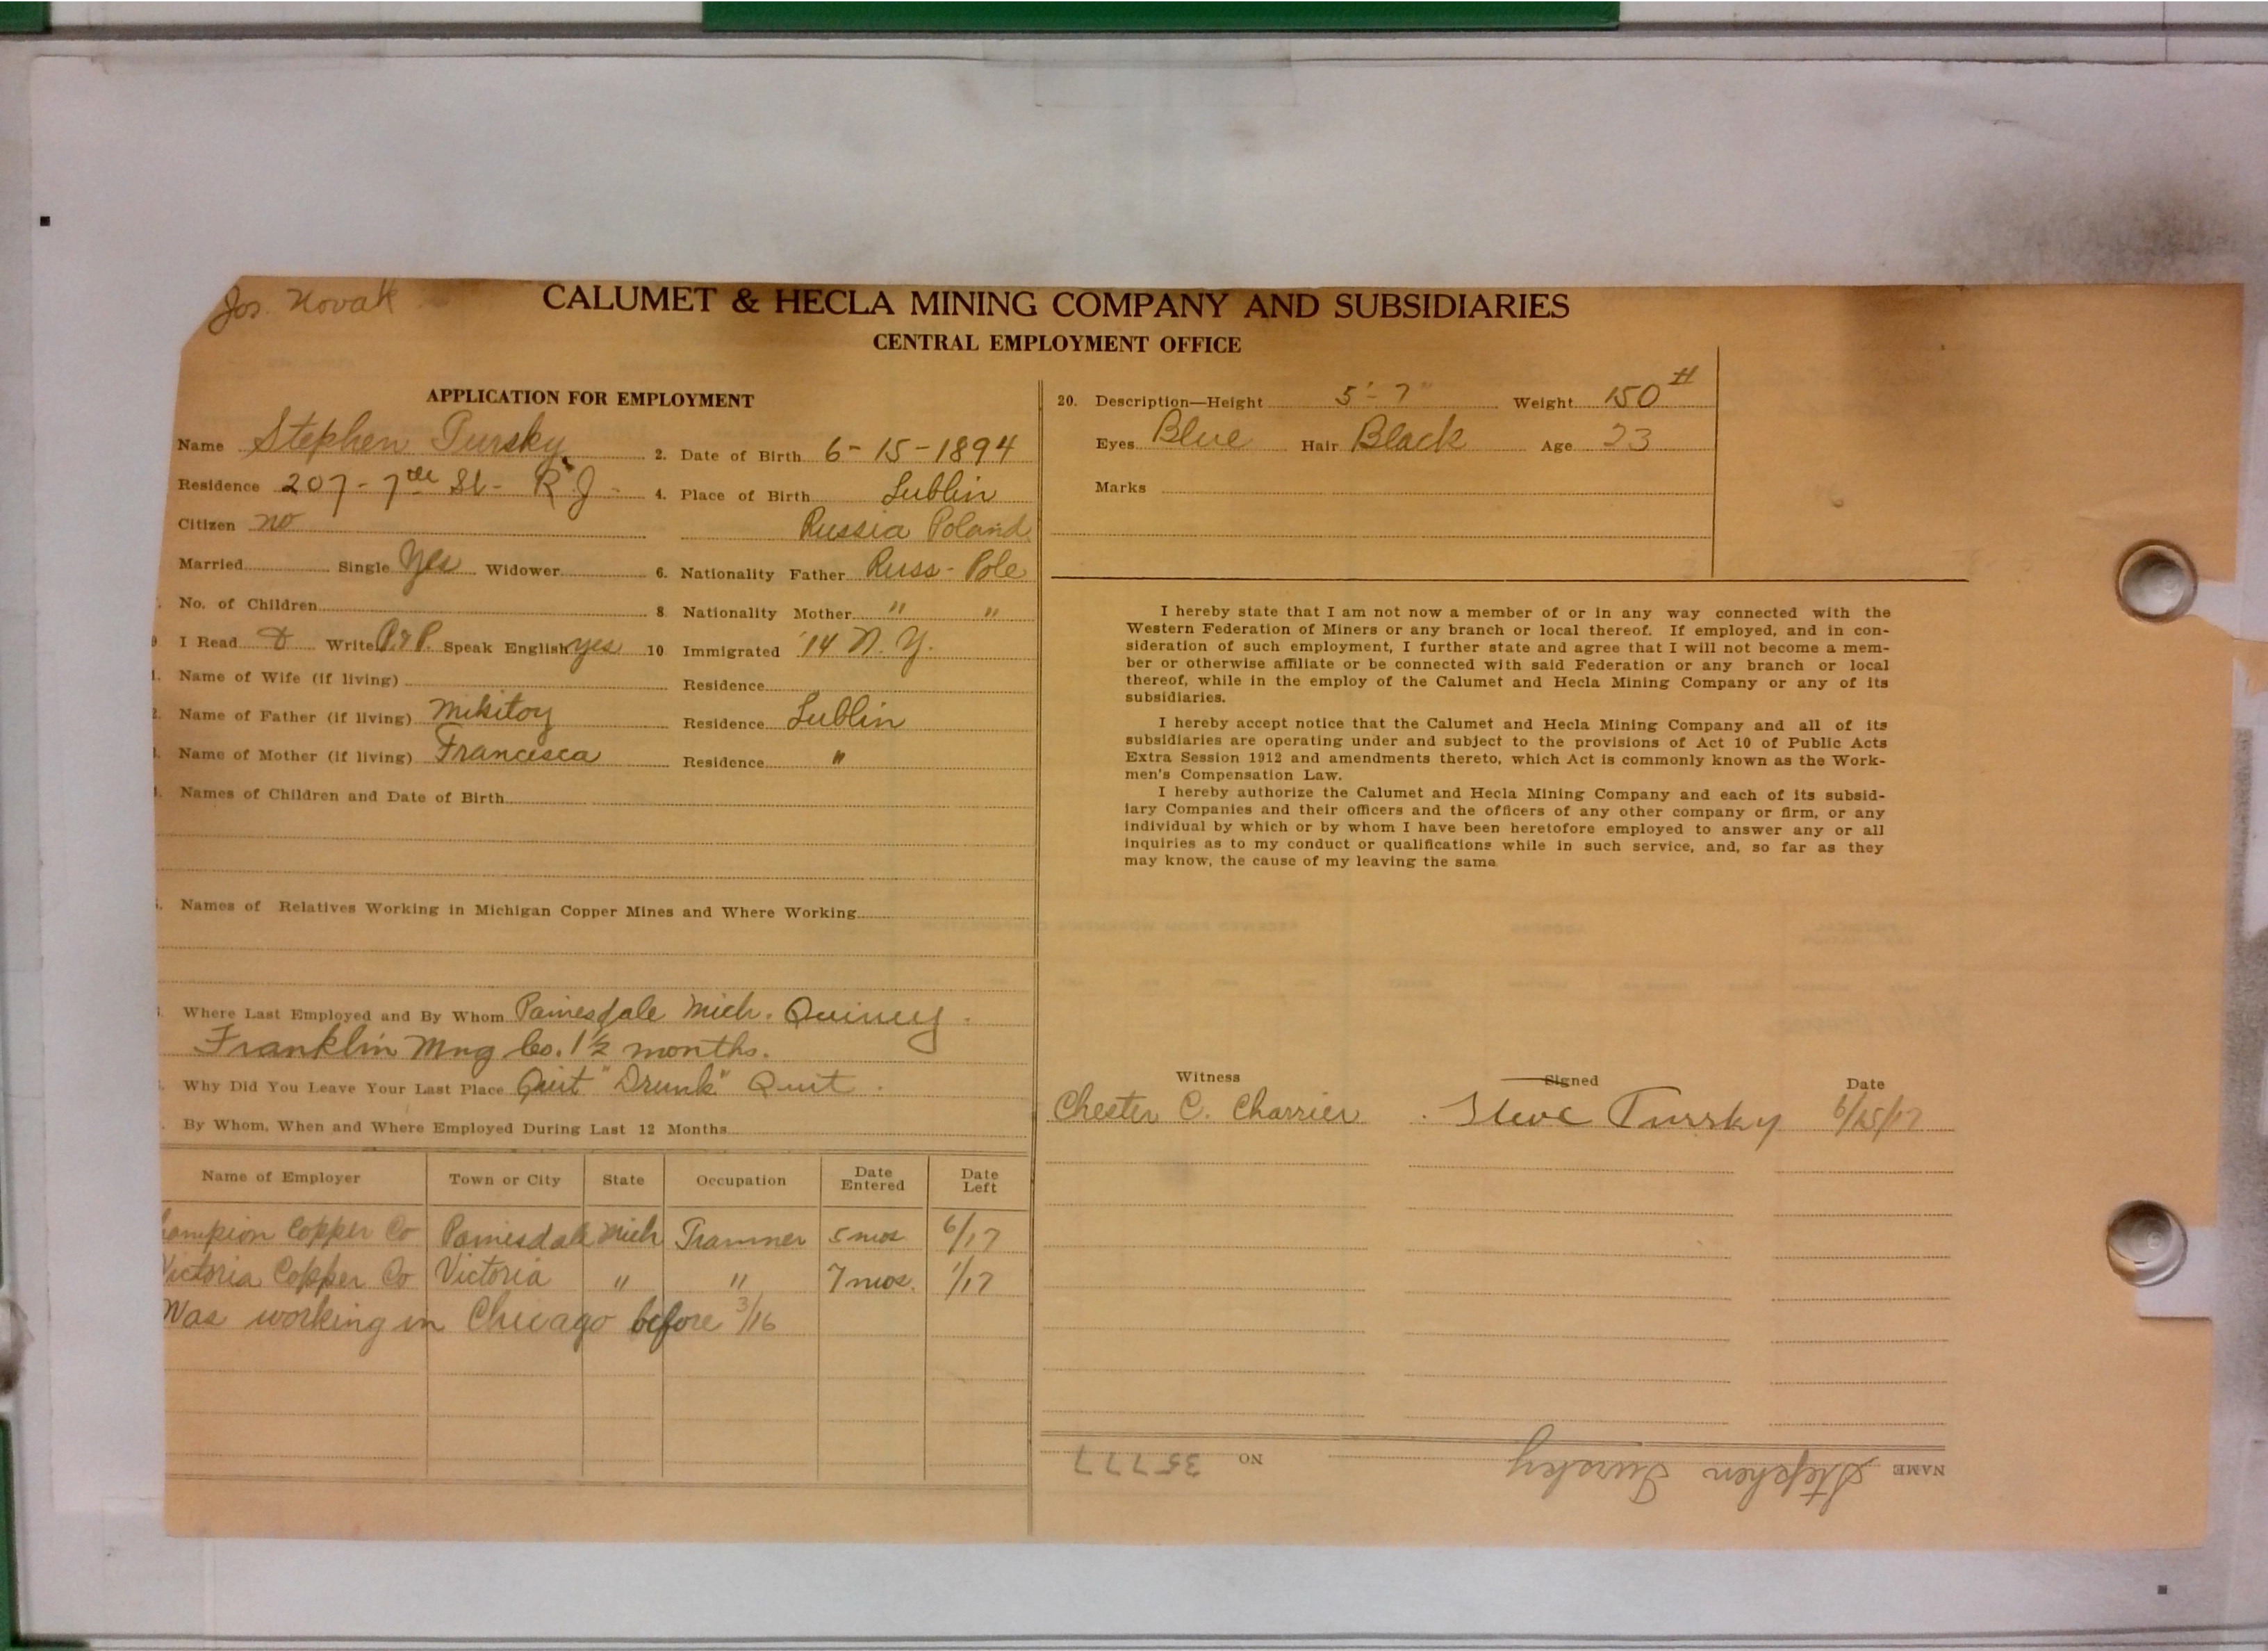 Jos. Novak
CALUMET & HECLA MINING COMPANY AND SUBSIDIARIES
CENTRAL EMPLOYMENT OFFICE
APPLICATION FOR EMPLOYMENT
Name Stephen Tursky 2. Date of Birth 6-15-1894
Residence 207-7th St- R.J- 4. Place of Birth Lublin
Citizen no Russia Poland
Married Single Yes Widower 6. Nationality Father Russ-Pole
No. of Children 8. Nationality Mother " "
I Read & Write R.&P. Speak English yes 10 Immigrated '14 N.Y.
Name of Wife (if living) Residence
Name of Father (if living) Residence Lublin
Name of Mother (if living) Francisca Residence "
Names of Children and Date of Birth
Names of Relatives Working in Michigan Copper Mines and Where Working
Where Last Employed and By Whom Painesdale Mich. Quincy.
Franklin Mng Co. 1½ months.
Why Did You Leave Your Last Place Quit "Drunk" Quit.
By Whom, When and Where Employed During Last 12 Months
Name of Employer Town or City State Occupation Date Entered Date Left
hampion Copper Co Painesdale Mich Trammer 5 mos 6/17
Victoria Copper Co Victoria " " 7 mos. 1/17
Was working in Chicago before 3/16
20. Description—Height 5'-7" Weight 150 #
Eyes Blue Hair Black Age 23
Marks
I hereby state that I am not now a member of or in any way connected with the
Western Federation of Miners or any branch or local thereof. If employed, and in con-
sideration of such employment, I further state and agree that I will not become a mem-
ber or otherwise affiliate or be connected with said Federation or any branch or local
thereof, while in the employ of the Calumet and Hecla Mining Company or any of its
subsidiaries.
I hereby accept notice that the Calumet and Hecla Mining Company and all of its
subsidiaries are operating under and subject to the provisions of Act 10 of Public Acts
Extra Session 1912 and amendments thereto, which Act is commonly known as the Work-
men's Compensation Law.
I hereby authorize the Calumet and Hecla Mining Company and each of its subsid-
iary Companies and their officers and the officers of any other company or firm, or any
individual by which or by whom I have been heretofore employed to answer any or all
inquiries as to my conduct or qualifications while in such service, and, so far as they
may know, the cause of my leaving the same
Witness Signed Date
Chester C. Charrier Steve Tursky 6/25/17
NAME Stephen Tursky NO 35777